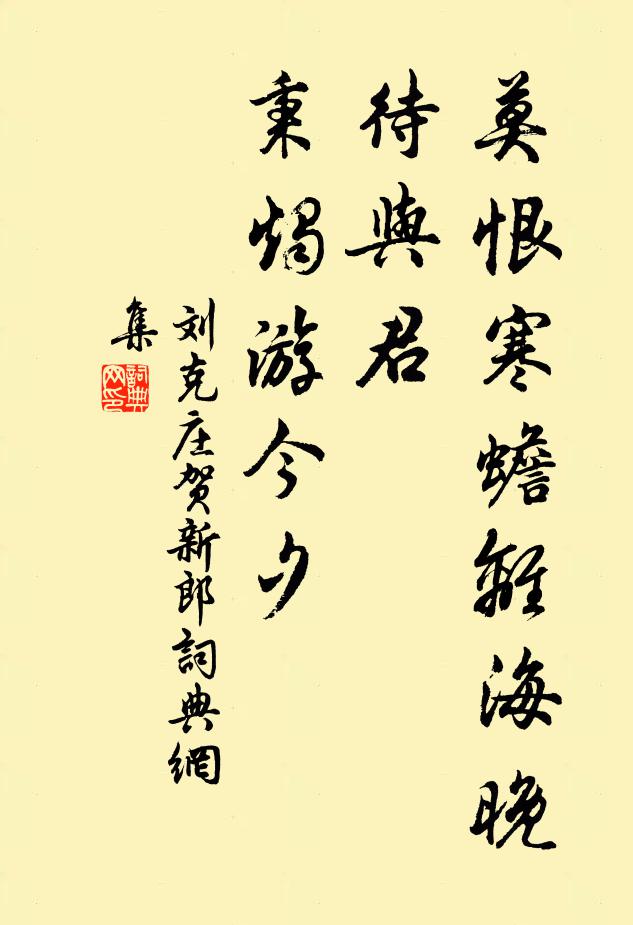 莫恨寒蟾離海晚
待與君
秉燭游今夕
刘克庄贺新郎詞典網
集
詞典
网印